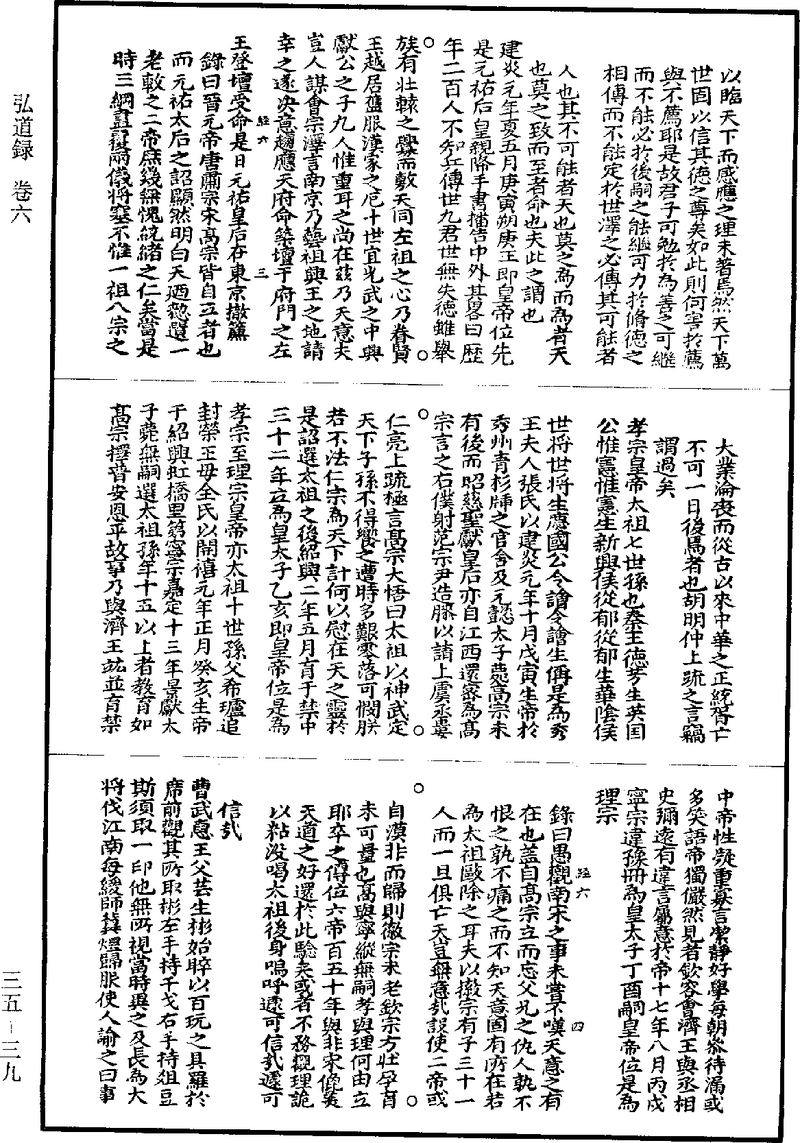 弘道録 卷六
以臨天下而感應之理未著焉然天下萬
世固以信其德之尊矣如此則何害於薦
與不薦耶是故君子可勉於為善之可繼
而不能必於後嗣之能繼可力於脩德之
相傳而不能定於世澤之必傳其可能者
人也其不可能者天也莫之為而為者天
也莫之致而至者命也夫此之謂也
建炎元年夏五月庚寅朔康王即皇帝位先
是元祐后皇親降手書播告中外其畧曰歷
年二百人不知兵傳世九君世無失德雖舉
族有北轅之釁而敷天同左袒之心乃眷賢
王越居舊服漢家之厄十世宜光武之中興
獻公之子九人惟重耳之尚在茲乃天意夫
豈人謀會宗澤言南京乃藝祖興王之地請
幸之遂決意趨應天府命築壇于府門之左
經六 三
王登壇受命是日元祐皇后在東京撤簾
錄曰晋元帝唐肅宗宋高宗皆自立者也
而元祐太后之詔顯然明白天廼懃選一
老敕之二帝庶幾無愧統緒之仁矣當是
時三綱並裂兩儀將塞不惟一祖八宗之
大業淪喪而從古以來中華之正統胥亡
不可一日後焉者也胡明仲上疏之言竊
謂過矣
孝宗皇帝太祖七世孫也秦王德芳生英国
公惟憲惟憲生新興侯從郁從郁生華隂侯
世将世将生慶國公令譮令譮生偁是為秀
王夫人張氏以建炎元年十月戊寅生帝於
秀州青杉牐之官舍及元懿太子薨高宗未
有後而昭慈聖獻皇后亦自江西還密為高
宗言之右僕射范宗尹造膝以請上虞丞婁
仁亮上疏極言高宗大悟曰太祖以神武定
天下子孫不得饗之遭時多艱零落可憫朕
若不法仁宗為天下計何以慰在天之靈於
是詔選太祖之後紹興二年五月育于禁中
三十二年立為皇太子乙亥即皇帝位是為
孝宗至理宗皇帝亦太祖十世孫父希瓐追
封榮王母全氏以開禧元年正月癸亥生帝
于紹興虹橋里第寧宗嘉定十三年景獻太
子薨無嗣選太祖孫年十五以上者教育如
髙宗擇普安恩平故事乃與濟王竑並育禁
中帝性凝重寡言潔靜好學每朝叅待漏或
多笑語帝獨儼然見者斂容會濟王與丞相
史彌逺有違言屬意於帝十七年八月丙戌
寧宗違豫冊為皇太子丁酉嗣皇帝位是為
理宗
經六 四
錄曰愚觀南宋之事未嘗不嘆天意之有
在也盖自高宗立而忘父兄之仇人孰不
恨之孰不痛之而不知天意固有所在若
為太祖敺除之耳夫以徽宗有子三十一
人而一旦俱亡天豈無意哉設使二帝或
自漠非而歸則徽宗未老欽宗方壯孕育
未可量也高與寧縱無嗣孝與理何由立
耶卒之傳位六帝百五十年與非宋偹美
天道之好還於此驗矣或者不務觀理詭
以粘没喝太祖後身嗚呼遽可信哉遽可
信哉
曹武惠王父芸生彬始晬以百玩之具羅於
席前觀其所取彬左手持干戈右手持俎豆
斯須取一印他無所視當時異之及長為大
将伐江南每緩師冀煜歸服使人諭之曰事
三五－三九